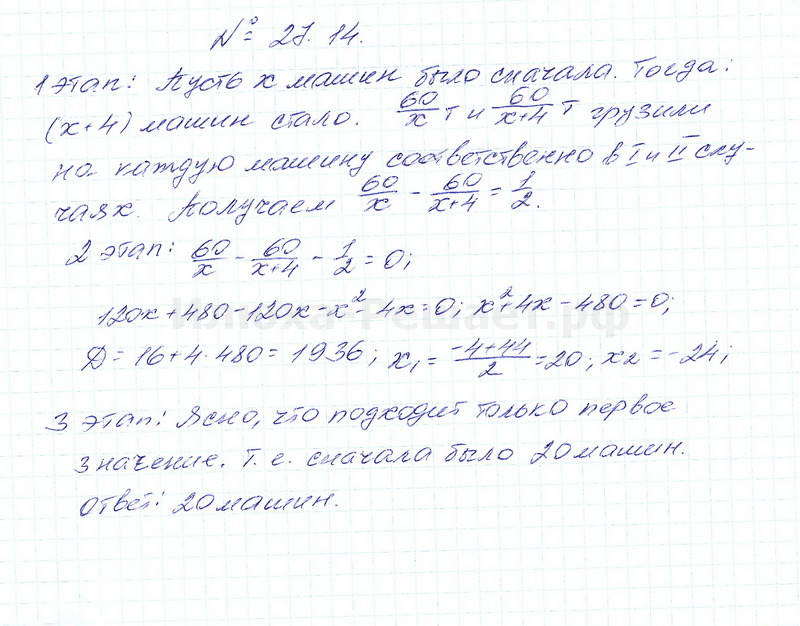 № 27.14.
1 этап: Пусть x машин было сначала. Тогда:
(x+4) машин стало. 60/x т и 60/(x+4) т грузили
на каждую машину соответственно в I и II слу-
чаях. Получаем 60/x - 60/(x+4) = 1/2.
2 этап: 60/x - 60/(x+4) - 1/2 = 0;
120x+480-120x-x²-4x=0; x²+4x-480=0;
D=16+4·480=1936; x₁=(-4+44)/2=20; x₂=-24;
3 этап: Ясно, что подходит только первое
значение. Т.е. сначала было 20 машин.
Ответ: 20 машин.
Илюха-Решает.рф